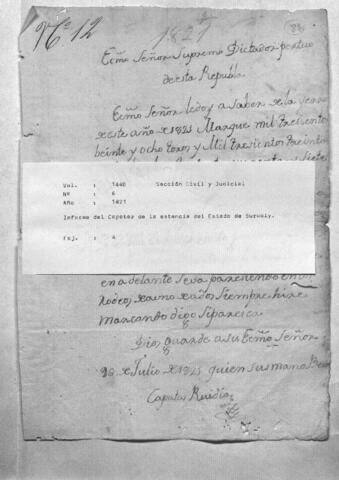 Nº 12
1821
Ecmo Señor Supremo Dictador perpetuo
de esta Republ.
Ecmo Señor le doy a Saber de la yerra
de este año de 1821 Marque mil tresiento
beinte y ocho toros y Mil tresientos treinta
Vol. : 1440 Sección Civil y Judicial
Nº : 6
Año : 1821
Informe del Capataz de la estancia del Estado de Surubiy.
Foj. : 4
en adelante se va pareciendo en un
Rodeo, siempre hire
marcando digo si parecica
Dios guarde a su Ecmo Señor
de Julio de 1821 quien su mano Besa
Capatas Ruidia